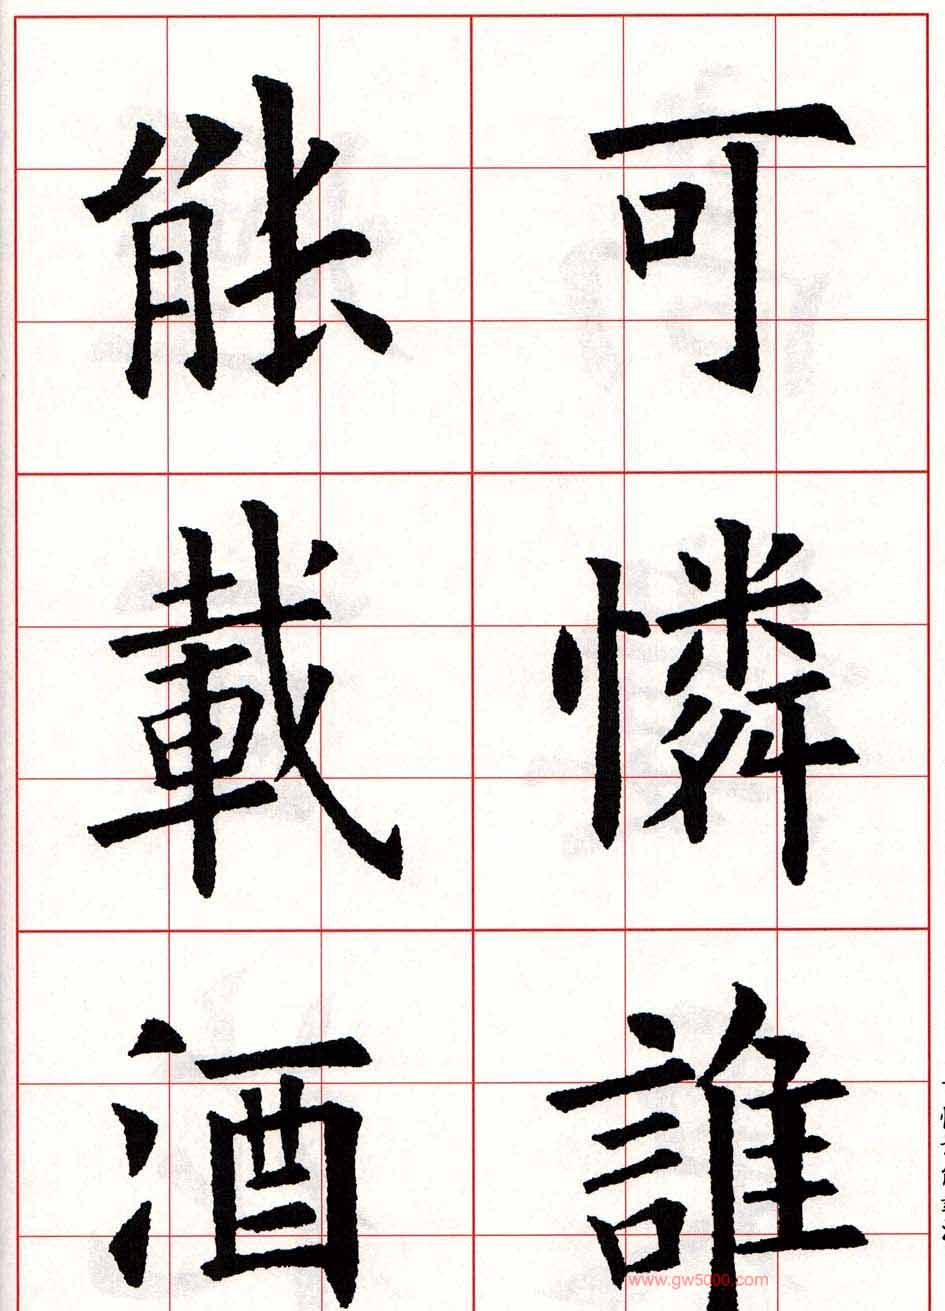 可憐誰
能載酒
www.gw5000.com